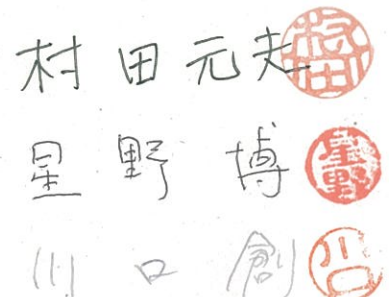 村田元夫 村田
星野博 星野
川口創 川口